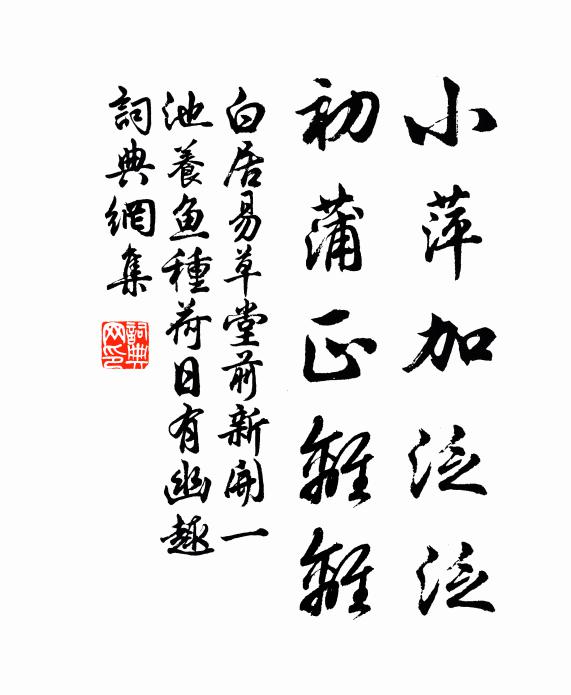 小萍加泛泛
初蒲正離離
白居易草堂前新開一
池養魚種荷日有幽趣
詞典網集
詞典網印